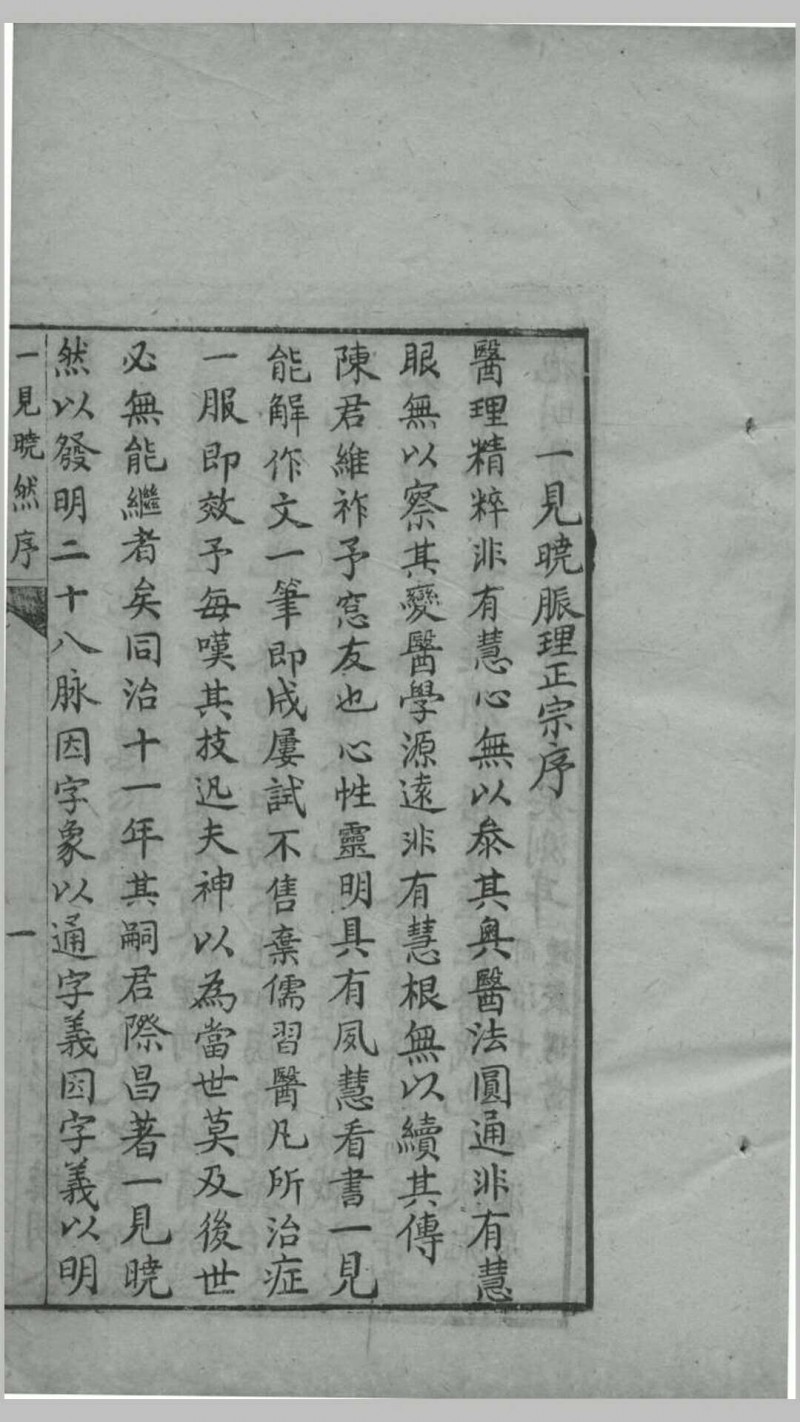 一見曉脈理正宗序
醫理精粹非有慧心無以叅其奧醫法圓通非有慧
眼無以察其變醫學源遠非有慧根無以續其傳
陳君維祚予窓友也心性靈明具有夙慧看書一見
能解作文一筆即成屢試不售棄儒習醫凡所治症
一服即效予每嘆其技迅夫神以為當世莫及後世
必無能繼者矣同治十一年其嗣君際昌著一見曉
然以發明二十八脉因字象以通字義因字義以明
一見曉然序
一